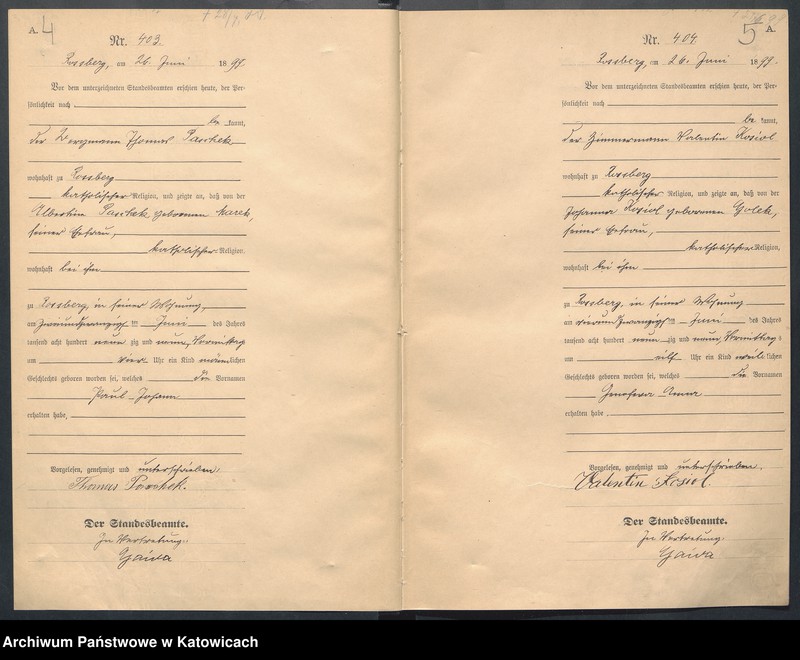 A. 4
Nr. 403.
Rossberg, am 26. Juni 1899.
Vor dem unterzeichneten Standesbeamten erschien heute, der Per-
sönlichkeit nach
be kannt,
der Bergmann Thomas Paschek
wohnhaft zu Rossberg
katholischer Religion, und zeigte an, daß von der
Albertine Paschek geborenen Kurek,
seiner Ehefrau,
katholischer Religion,
wohnhaft bei ihm
zu Rossberg, in seiner Wohnung,
am zweiundzwanzigsten Juni des Jahres
tausend acht hundert neun zig und neun, Vormittag
um vier Uhr ein Kind männlichen
Geschlechts geboren worden sei, welches den Vornamen
Paul Johann
erhalten habe,
Vorgelesen, genehmigt und unterschrieben:
Thomas Paschek.
Der Standesbeamte.
In Vertretung:
Gaida
5 A.
Nr. 404.
Rossberg, am 26. Juni 1899.
Vor dem unterzeichneten Standesbeamten erschien heute, der Per-
sönlichkeit nach
be kannt,
der Zimmermann Valentin Kosiol
wohnhaft zu Rossberg
katholischer Religion, und zeigte an, daß von der
Johanna Kosiol geborenen Golek,
seiner Ehefrau,
katholischer Religion,
wohnhaft bei ihm
zu Rossberg, in seiner Wohnung
am vierundzwanzigsten Juni des Jahres
tausend acht hundert neun zig und neun, Vormittag
um elf Uhr ein Kind weiblichen
Geschlechts geboren worden sei, welches die Vornamen
Genofeva Anna
erhalten habe.
Vorgelesen, genehmigt und unterschrieben.
Valentin Kosiol.
Der Standesbeamte.
In Vertretung:
Gaida
Archiwum Państwowe w Katowicach